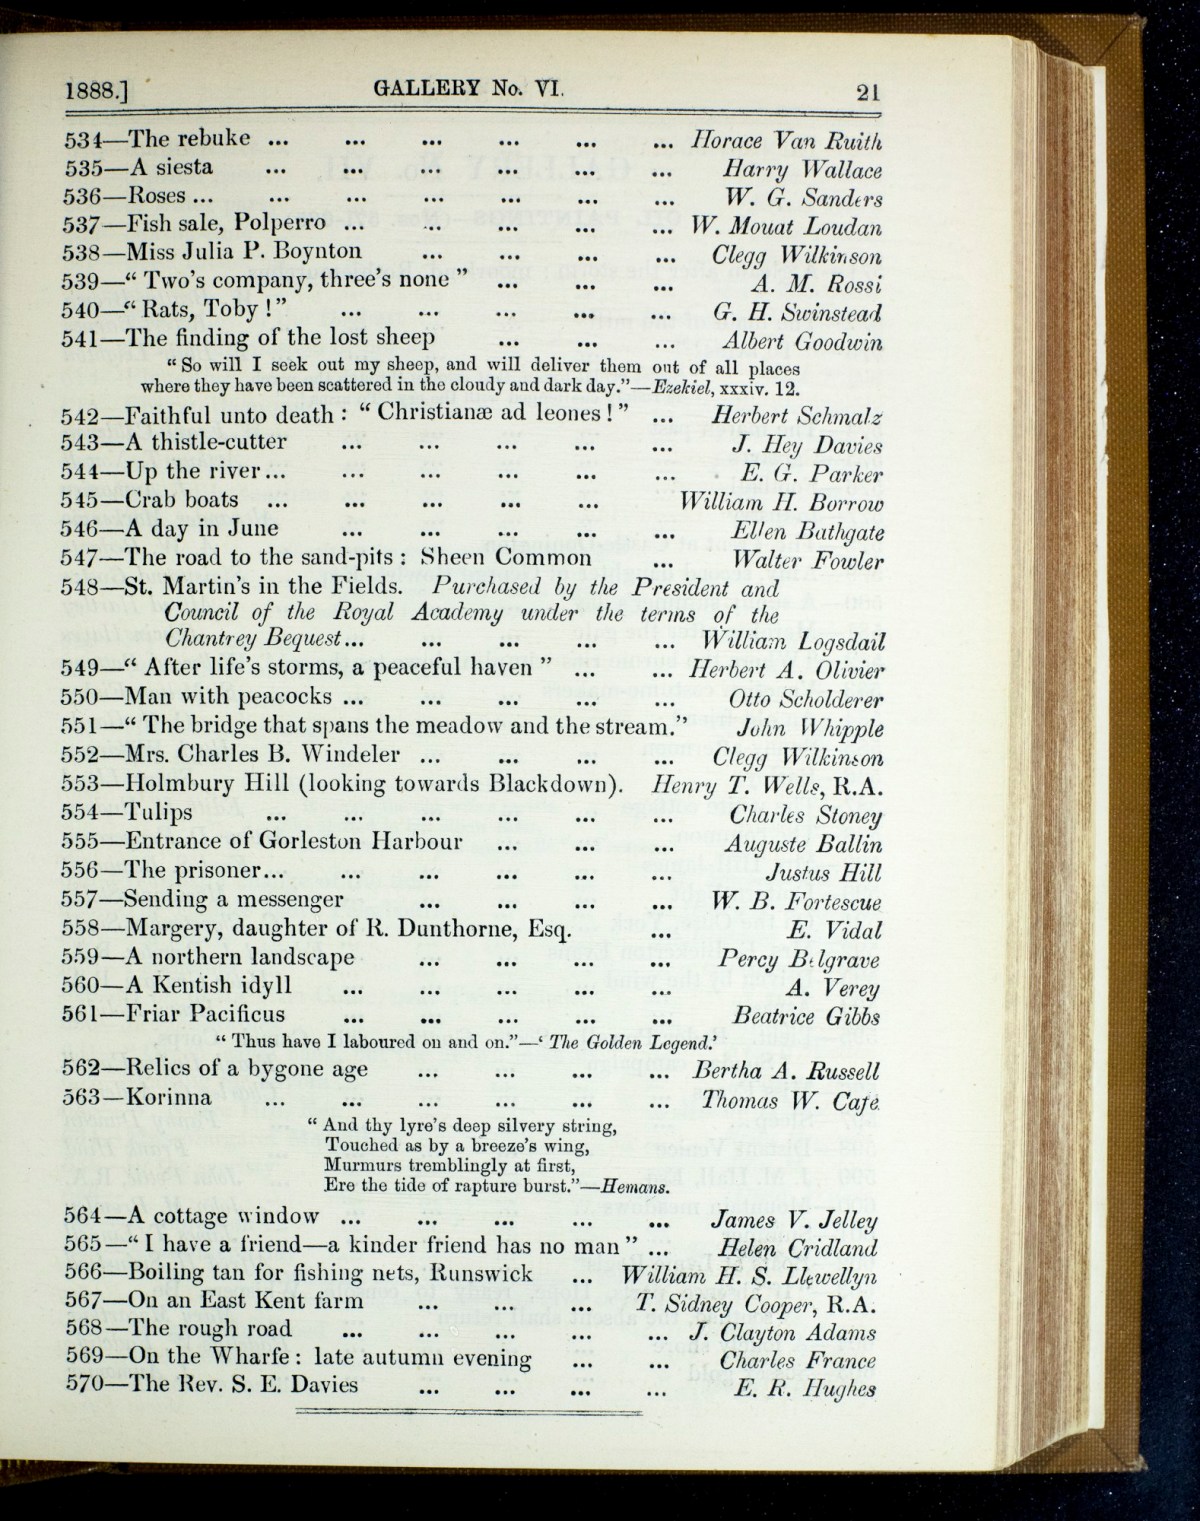 1888.] GALLERY No. VI. 21
534—The rebuke ... ... ... ... ... ... Horace Van Ruith
535—A siesta ... ... ... ... ... ... Harry Wallace
536—Roses ... ... ... ... ... ... ... W. G. Sanders
537—Fish sale, Polperro ... ... ... ... ... W. Mouat Loudan
538—Miss Julia P. Boynton ... ... ... ... Clegg Wilkinson
539—“ Two’s company, three’s none ” ... ... ... A. M. Rossi
540—“ Rats, Toby ! ” ... ... ... ... ... G. H. Swinstead
541—The finding of the lost sheep ... ... ... Albert Goodwin
“ So will I seek out my sheep, and will deliver them out of all places
where they have been scattered in the cloudy and dark day.”—Ezekiel, xxxiv. 12.
542—Faithful unto death : “ Christianæ ad leones ! ” ... Herbert Schmalz
543—A thistle-cutter ... ... ... ... ... J. Hey Davies
544—Up the river ... ... ... ... ... ... E. G. Parker
545—Crab boats ... ... ... ... ... William H. Borrow
546—A day in June ... ... ... ... ... Ellen Bathgate
547—The road to the sand-pits : Sheen Common ... Walter Fowler
548—St. Martin’s in the Fields. Purchased by the President and
Council of the Royal Academy under the terms of the
Chantrey Bequest ... ... ... ... ... William Logsdail
549—“ After life’s storms, a peaceful haven ” ... ... Herbert A. Olivier
550—Man with peacocks ... ... ... ... ... Otto Scholderer
551—“ The bridge that spans the meadow and the stream.” John Whipple
552—Mrs. Charles B. Windeler ... ... ... ... Clegg Wilkinson
553—Holmbury Hill (looking towards Blackdown). Henry T. Wells, R.A.
554—Tulips ... ... ... ... ... ... Charles Stoney
555—Entrance of Gorleston Harbour ... ... ... Auguste Ballin
556—The prisoner ... ... ... ... ... ... Justus Hill
557—Sending a messenger ... ... ... ... W. B. Fortescue
558—Margery, daughter of R. Dunthorne, Esq. ... E. Vidal
559—A northern landscape ... ... ... ... Percy Belgrave
560—A Kentish idyll ... ... ... ... ... A. Verey
561—Friar Pacificus ... ... ... ... ... Beatrice Gibbs
“ Thus have I laboured on and on.”—‘ The Golden Legend.’
562—Relics of a bygone age ... ... ... ... Bertha A. Russell
563—Korinna ... ... ... ... ... ... Thomas W. Cafe
“ And thy lyre’s deep silvery string,
Touched as by a breeze’s wing,
Murmurs tremblingly at first,
Ere the tide of rapture burst.”—Hemans.
564—A cottage window ... ... ... ... ... James V. Jelley
565—“ I have a friend—a kinder friend has no man ” ... Helen Cridland
566—Boiling tan for fishing nets, Runswick ... William H. S. Llewellyn
567—On an East Kent farm ... ... ... T. Sidney Cooper, R.A.
568—The rough road ... ... ... ... ... J. Clayton Adams
569—On the Wharfe : late autumn evening ... ... Charles France
570—The Rev. S. E. Davies ... ... ... ... E. R. Hughes